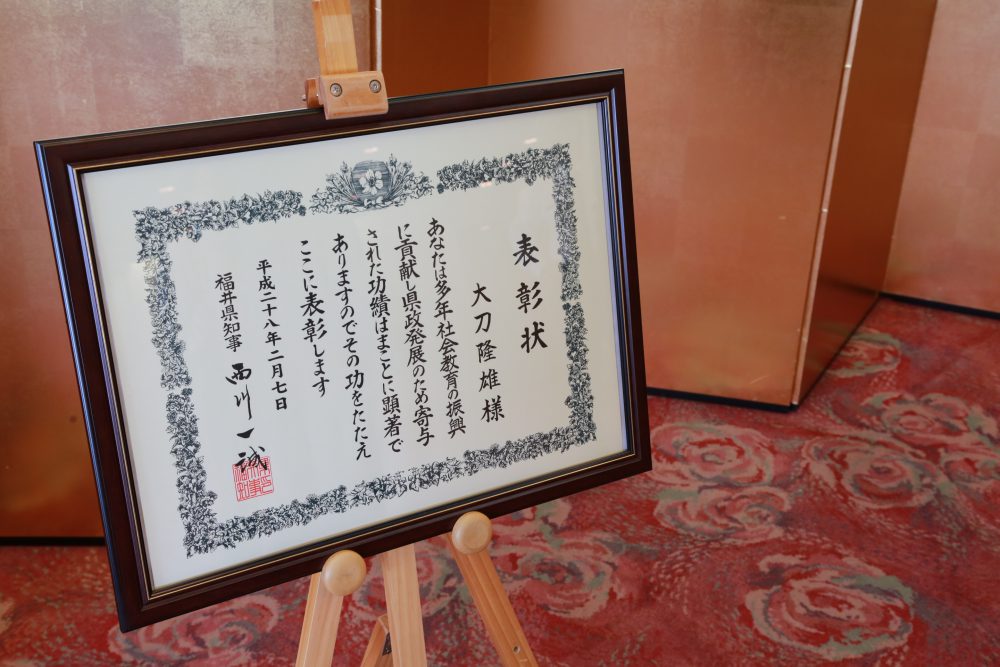 表彰状
大刀隆雄様
あなたは多年社会教育の振興
に貢献し県政発展のため寄与
された功績はまことに顕著で
ありますのでその功をたたえ
ここに表彰します
平成二十八年二月七日
福井県知事 西川一誠